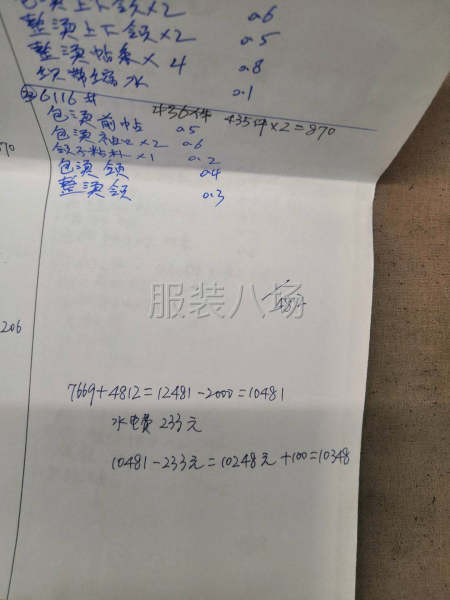 包烫上下领×2 0.6
整烫上下领×2 0.5
整烫帖条×4 0.8
织带缩水 0.1
6116# 436件 435件×2=870
包烫前帖 0.5
包烫袖口×2 0.6
领子粘朴×1 0.2
包烫领 0.4
整烫领 0.3
服装八场
206
7669+4812=12481-2000=10481
水电费 233元
10481-233元=10248元+100=10348